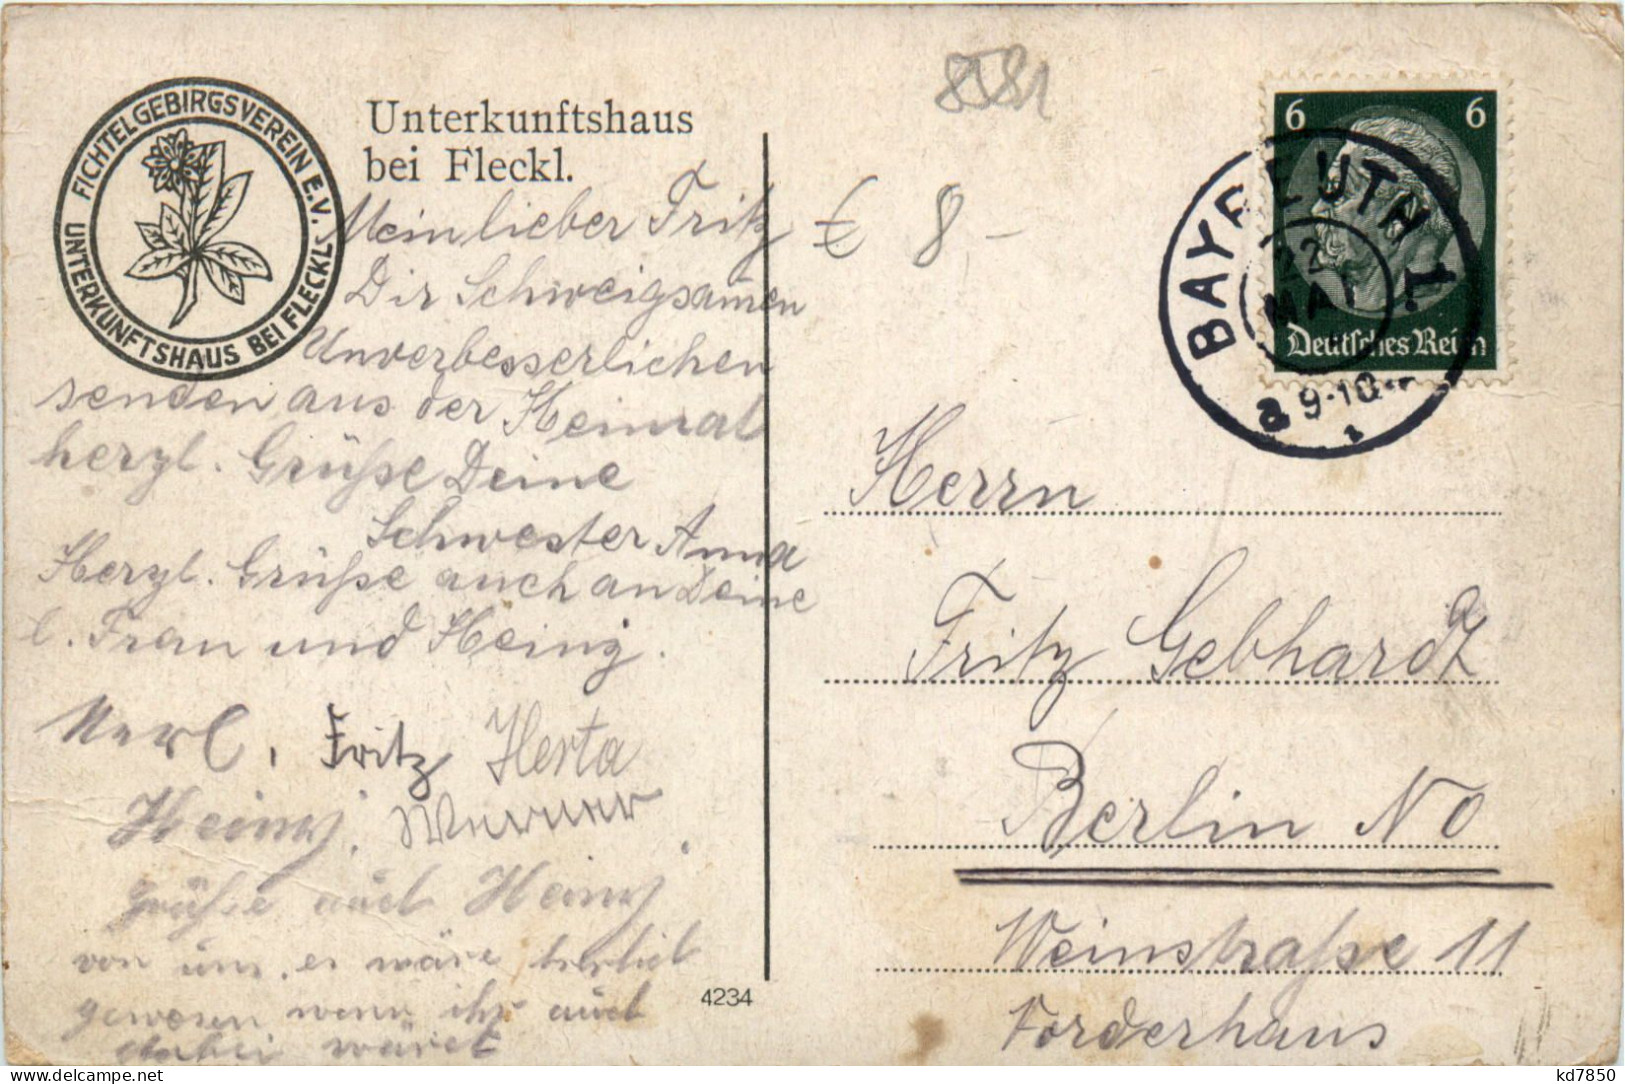 8581
FICHTELGEBIRGSVEREIN E.V.
UNTERKUNFTSHAUS BEI FLECKL
Unterkunftshaus
bei Fleckl.
Mein lieber Fritz
Dir Schweigsamen
Unverbesserlichen
senden aus der Heimat
herzl. Grüße Deine
Schwester Anna
Herzl. Grüße auch an Deine
l. Frau und Heinz.
Karl, Fritz Herta
Heinz, Werner.
Grüße auch Heinz
von uns, es wäre herrlich
gewesen wenn ihr auch
dabei wäret
4234
€ 8,-
6 6
Deutsches Reich
BAYREUTH 1.
22
MAI
a 9-10
Herrn
Fritz Gebhardt
Berlin NO
Weinstraße 11
Vorderhaus
kd7850